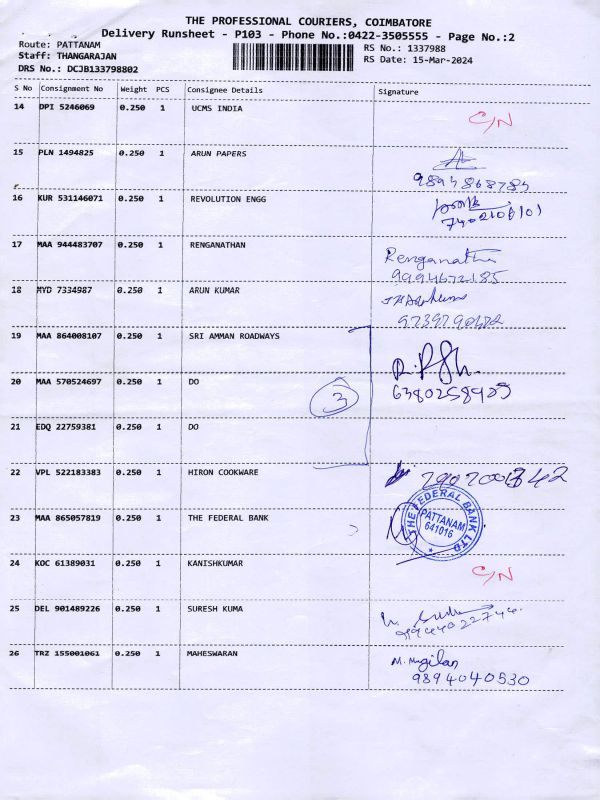 THE PROFESSIONAL COURIERS, COIMBATORE
Delivery Runsheet - P103 - Phone No.:0422-3505555 - Page No.:2
Route: PATTANAM
RS No.: 1337988
Staff: THANGARAJAN
RS Date: 15-Mar-2024
DRS No.: DCJB133798802
S No Consignment No Weight PCS Consignee Details Signature
14 DPI 5246069 0.250 1 UCMS INDIA C/N
15 PLN 1494825 0.250 1 ARUN PAPERS
16 KUR 531146071 0.250 1 REVOLUTION ENGG
17 MAA 944483707 0.250 1 RENGANATHAN Renganathan
9994672185
18 MYD 7334987 0.250 1 ARUN KUMAR
19 MAA 864008107 0.250 1 SRI AMMAN ROADWAYS
20 MAA 570524697 0.250 1 DO 3
6380258905
21 EDQ 22759381 0.250 1 DO
22 VPL 522183383 0.250 1 HIRON COOKWARE
23 MAA 865057819 0.250 1 THE FEDERAL BANK
THE FEDERAL BANK LTD
PATTANAM
641016
24 KOC 61389031 0.250 1 KANISHKUMAR C/N
25 DEL 901489226 0.250 1 SURESH KUMA
26 TRZ 155001061 0.250 1 MAHESWARAN M. Mugilan
9894040530